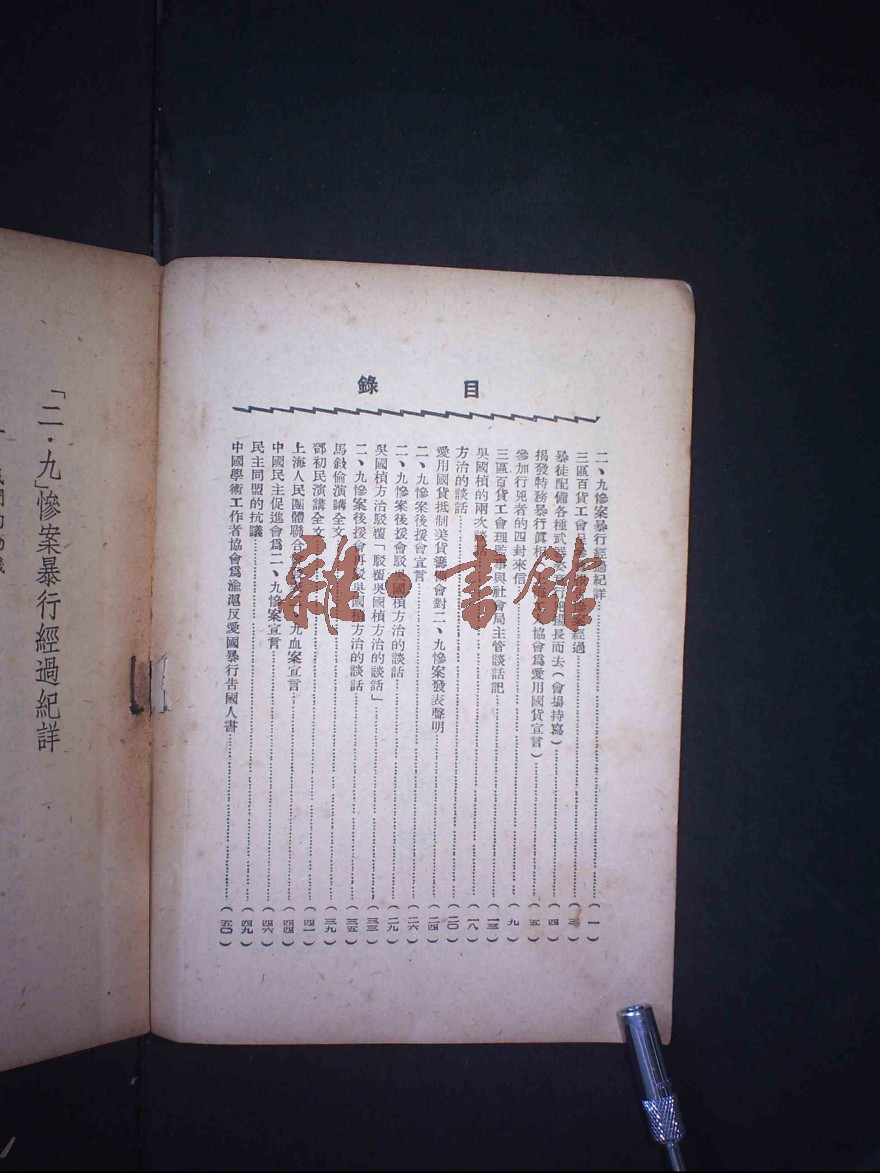 目錄
二、九慘案暴行經過紀詳(一)
三區百貨工會 經過(三)
暴徒配備各種武器 長而去(會場特寫)(四)
揭發特務暴行眞相 協會爲愛用國貨宣言)(五)
參加行兇者的四封來信(九)
三區百貨工會理監事與社會局主管談話記(一三)
吳國楨的兩次談話(一八)
方治的談話(二〇)
愛用國貨抵制美貨籌備會對二、九慘案發表聲明(二四)
二、九慘案後援會宣言(二六)
二、九慘案後援會駁吳國楨方治的談話(二九)
吳國楨方治駁覆「駁覆吳國楨方治的談話」(三三)
二、九慘案後援會再駁吳國楨方治的談話(三五)
馬敍倫演講全文(三九)
鄧初民演講全文(四一)
上海人民團體聯合會 二、九血案宣言(四四)
中國民主促進會爲二、九慘案宣言(四六)
民主同盟的抗議(四九)
中國學術工作者協會爲渝滬反愛國暴行告國人書(五〇)
「二·九」慘案暴行經過紀詳
雜·書館